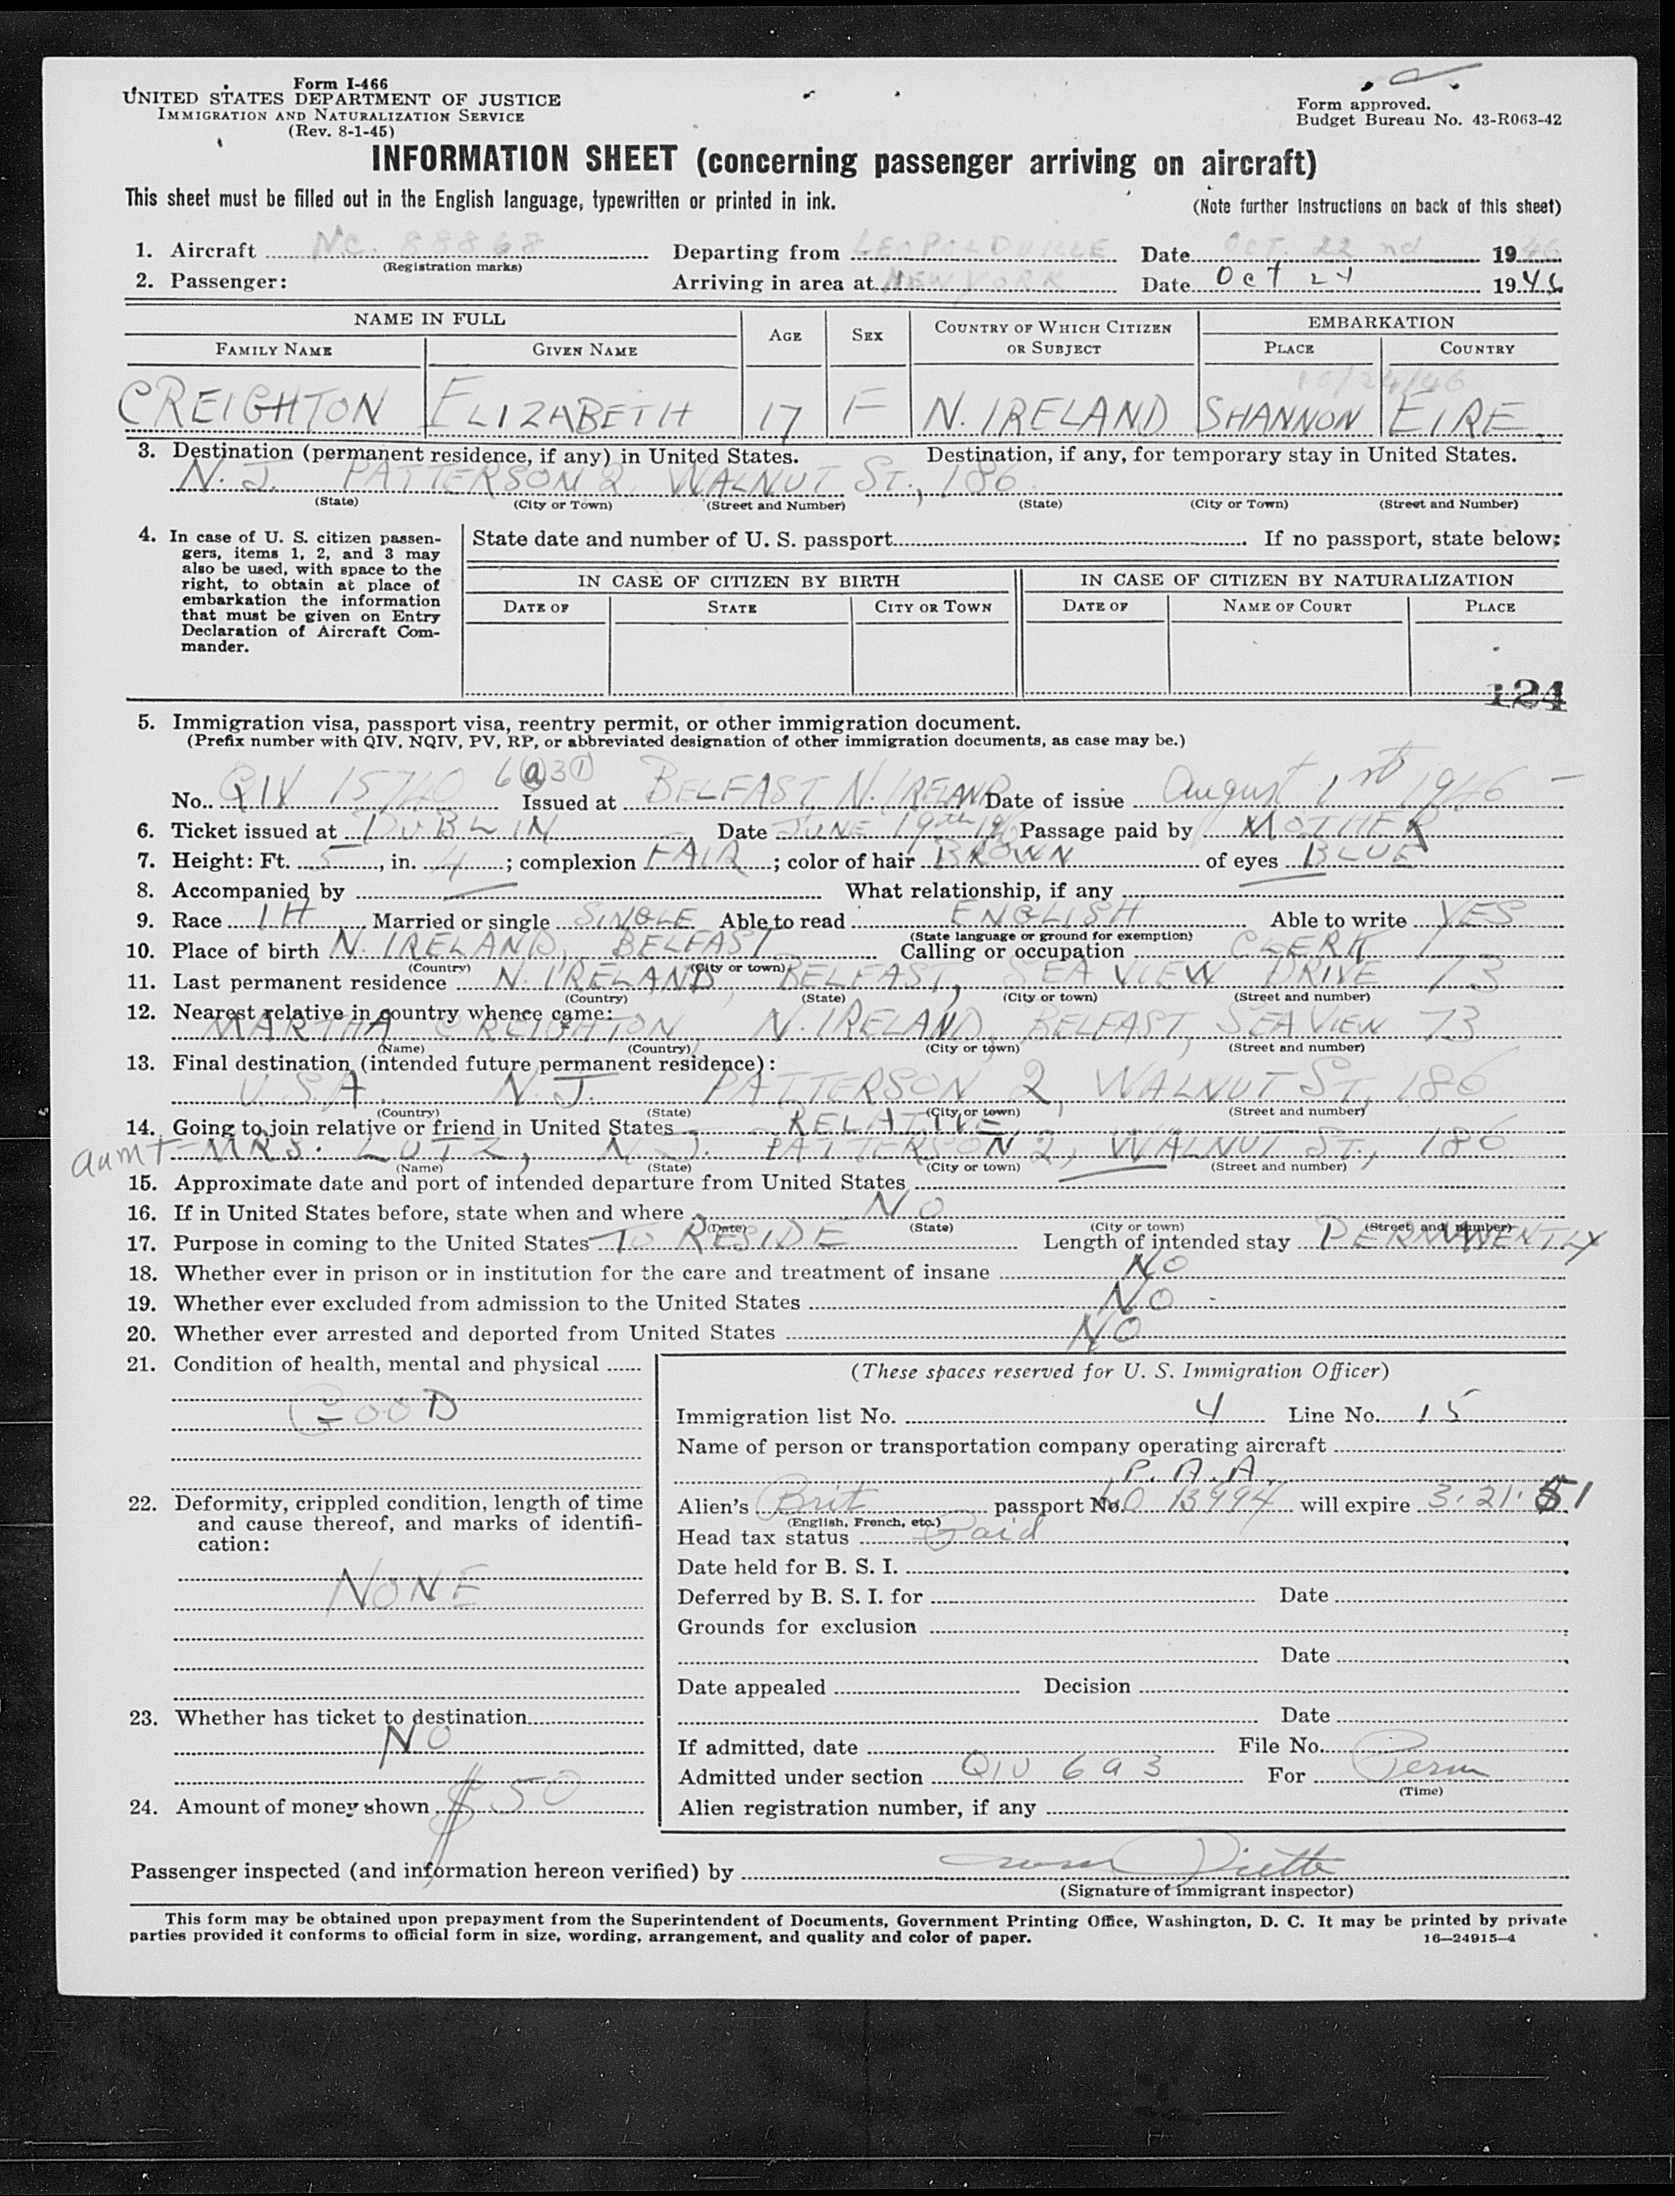 Form I-466
UNITED STATES DEPARTMENT OF JUSTICE
IMMIGRATION AND NATURALIZATION SERVICE
(Rev. 8-1-45)
Form approved.
Budget Bureau No. 43-R063-42
INFORMATION SHEET (concerning passenger arriving on aircraft)
This sheet must be filled out in the English language, typewritten or printed in ink.
(Note further instructions on back of this sheet)
1. Aircraft NC. 88868 Departing from LEOPOLDVILLE Date OCT. 22nd 1946
(Registration marks)
2. Passenger: Arriving in area at NEW YORK Date Oct 24 1946
NAME IN FULL AGE SEX COUNTRY OF WHICH CITIZEN OR SUBJECT EMBARKATION
FAMILY NAME GIVEN NAME PLACE COUNTRY
10/24/46
CREIGHTON ELIZABETH 17 F N. IRELAND SHANNON EIRE
3. Destination (permanent residence, if any) in United States. Destination, if any, for temporary stay in United States.
N. J. PATTERSON 2 WALNUT ST., 186
(State) (City or Town) (Street and Number) (State) (City or Town) (Street and Number)
4. In case of U. S. citizen passen-
gers, items 1, 2, and 3 may
also be used, with space to the
right, to obtain at place of
embarkation the information
that must be given on Entry
Declaration of Aircraft Com-
mander.
State date and number of U. S. passport If no passport, state below:
IN CASE OF CITIZEN BY BIRTH IN CASE OF CITIZEN BY NATURALIZATION
DATE OF STATE CITY OR TOWN DATE OF NAME OF COURT PLACE
124
5. Immigration visa, passport visa, reentry permit, or other immigration document.
(Prefix number with QIV, NQIV, PV, RP, or abbreviated designation of other immigration documents, as case may be.)
6(a)3(1)
No. QIV 15740 Issued at BELFAST N. IRELAND Date of issue August 1st 1946
6. Ticket issued at DUBLIN Date JUNE 19th Passage paid by MOTHER
7. Height: Ft. 5, in. 4; complexion FAIR; color of hair BROWN of eyes BLUE
8. Accompanied by — What relationship, if any —
9. Race IH Married or single SINGLE Able to read ENGLISH Able to write YES
(State language or ground for exemption)
10. Place of birth N. IRELAND, BELFAST Calling or occupation CLERK
(Country) (City or town)
11. Last permanent residence N. IRELAND, BELFAST, SEA VIEW DRIVE 73
(Country) (State) (City or town) (Street and number)
12. Nearest relative in country whence came:
MARTHA CREIGHTON, N. IRELAND, BELFAST, SEA VIEW 73
(Name) (Country) (City or town) (Street and number)
13. Final destination (intended future permanent residence):
U.S.A. N. J. PATTERSON 2, WALNUT ST, 186
(Country) (State) (City or town) (Street and number)
14. Going to join relative or friend in United States RELATIVE
aunt MRS. LUTZ, N. J. PATTERSON 2, WALNUT ST., 186
(Name) (State) (City or town) (Street and number)
15. Approximate date and port of intended departure from United States —
16. If in United States before, state when and where NO
(Date) (State) (City or town) (Street and number)
17. Purpose in coming to the United States TO RESIDE Length of intended stay PERMANENTLY
18. Whether ever in prison or in institution for the care and treatment of insane NO
19. Whether ever excluded from admission to the United States NO
20. Whether ever arrested and deported from United States NO
21. Condition of health, mental and physical
GOOD
22. Deformity, crippled condition, length of time
and cause thereof, and marks of identifi-
cation:
NONE
23. Whether has ticket to destination
NO
24. Amount of money shown $50
(These spaces reserved for U. S. Immigration Officer)
Immigration list No. 4 Line No. 15
Name of person or transportation company operating aircraft
P. A. A.
Alien's Brit passport No. 13994 will expire 3.21.51
(English, French, etc.)
Head tax status Paid
Date held for B. S. I.
Deferred by B. S. I. for Date
Grounds for exclusion
Date
Date appealed Decision
Date
If admitted, date File No.
Admitted under section QIV 6 a 3 For Perm
(Time)
Alien registration number, if any
Passenger inspected (and information hereon verified) by
(Signature of immigrant inspector)
This form may be obtained upon prepayment from the Superintendent of Documents, Government Printing Office, Washington, D. C. It may be printed by private
parties provided it conforms to official form in size, wording, arrangement, and quality and color of paper.
16—24915-4